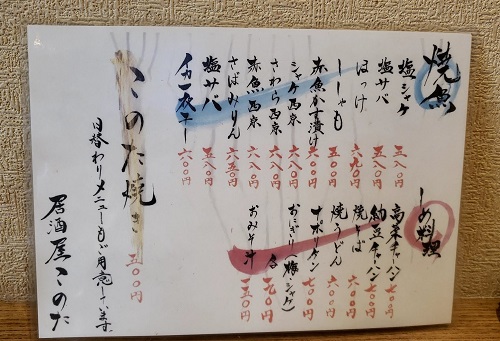 焼魚
塩シャケ 五八〇円
塩サバ 五八〇円
ほっけ 六九〇円
ししゃも 五〇〇円
赤魚かす漬け 六〇〇円
シャケ西京 六八〇円
さわら西京 六八〇円
赤魚西京 六八〇円
さばみりん 六五〇円
塩サバ 五八〇円
イカ一夜干し 六〇〇円
しめ料理
高菜チャーハン 七〇〇円
納豆チャーハン 七〇〇円
焼そば 六〇〇円
焼うどん 六〇〇円
ナポリタン 七〇〇円
おにぎり(梅・シャケ)
各 一九〇円
おみそ汁 一五〇円
このた焼き 五〇〇円
日替わりメニューもご用意してい〼
居酒屋このた